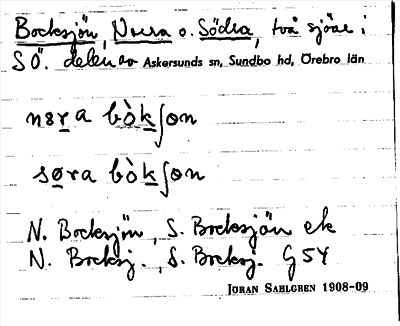 Bocksjön, Norra o. Södra, två sjöar i
SÖ. delen av Askersunds sn, Sundbo hd, Örebro län
nɷra bòkʃɷn
søra bòkʃɷn
N. Bocksjön, S. Bocksjön ek
N. Bocksj., S. Bocksj. G 54
JORAN SAHLGREN 1908-09